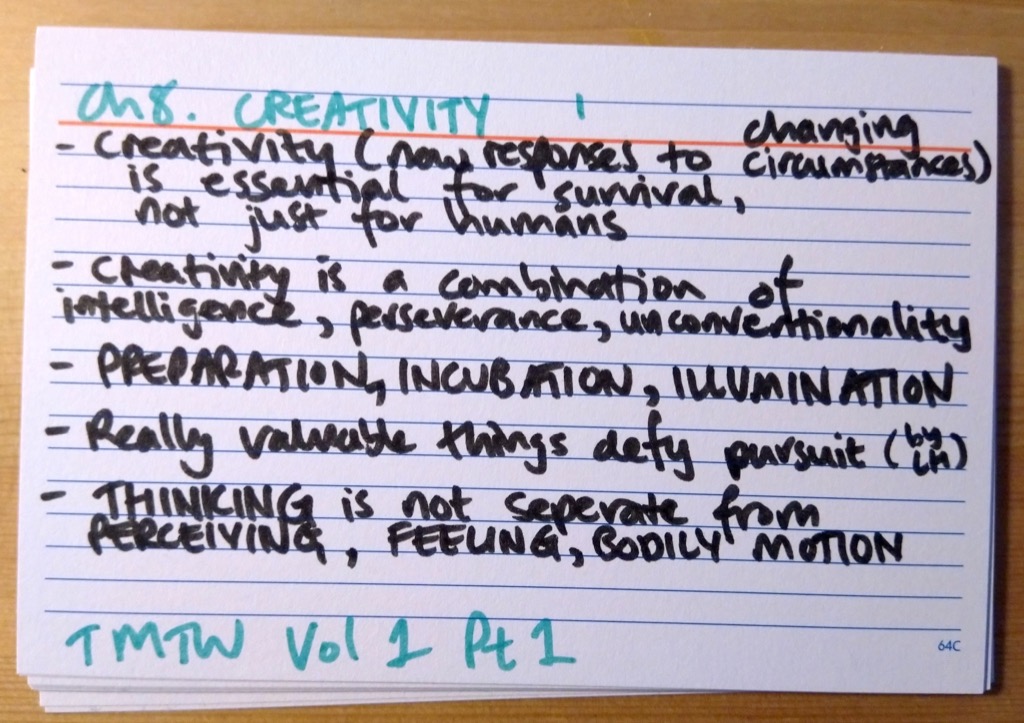 Ch 8. CREATIVITY 1
- Creativity (new responses to changing circumstances)
is essential for survival,
not just for humans
- Creativity is a combination of
intelligence, perseverance, unconventionality
- PREPARATION, INCUBATION, ILLUMINATION
- Really valuable things defy pursuit (by LH)
- THINKING is not seperate from
PERCEIVING, FEELING, BODILY MOTION
TMTW Vol 1 Pt 1
64C